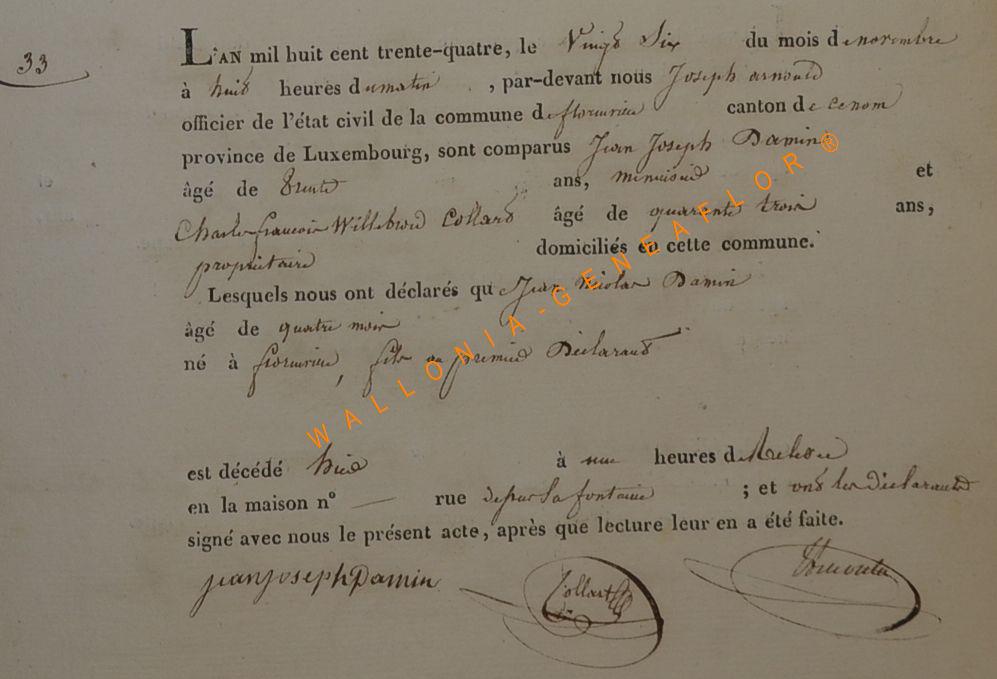 33
L'AN mil huit cent trente-quatre, le Vingt Six du mois de novembre
à huit heures du matin, par-devant nous Joseph arnould
officier de l'état civil de la commune de florenville canton de
province de Luxembourg, sont comparus Jean Joseph Damin
âgé de trente ans, menuisier et
Charles françois Willebrord Collard âgé de quarante trois ans,
propriétaire domiciliés en cette commune.
Lesquels nous ont déclarés que Jean Nicolas Damin
âgé de quatre mois
né à florenville, fils du premier Déclarant
est décédé hier à une heures de
en la maison nº — rue de sur la fontaine ; et ont les déclarants
signé avec nous le présent acte, après que lecture leur en a été faite.
jean joseph Damin Collart
WALLONIA-GENEAFLOR®